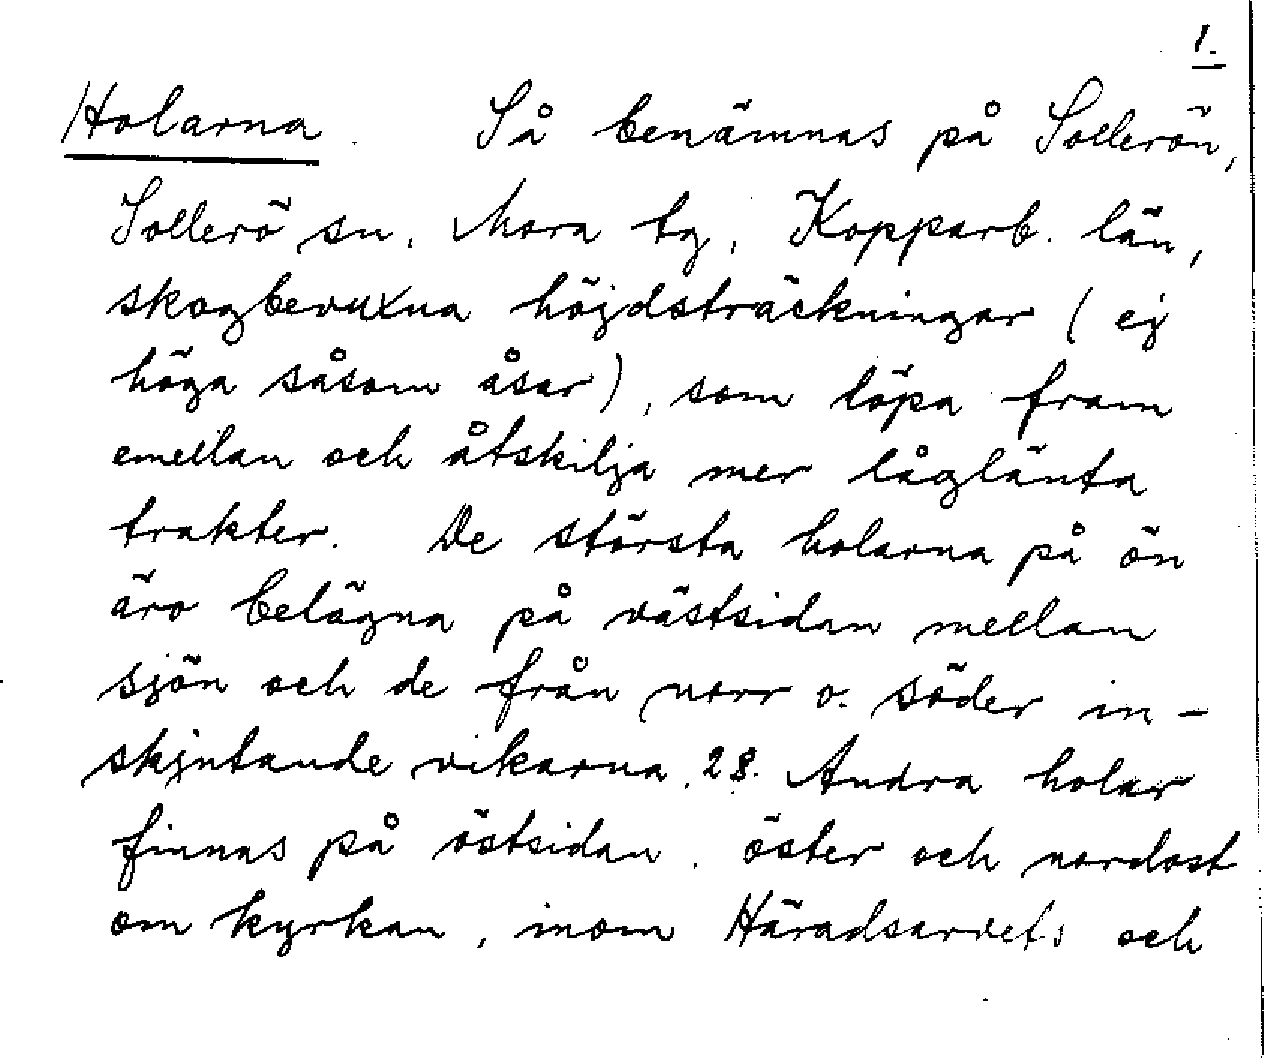 1.
Holarna. Så benämnas på Sollerön,
Sollerö sn, Mora tg, Kopparb. län,
skogbevuxna höjdsträckningar (ej
höga såsom åsar), som löpa fram
emellan och åtskilja mer låglänta
trakter. De största holarna på ön
äro belägna på västsidan mellan
sjön och de från norr o. söder in-
skjutande vikarna. 28. Andra holar
finnas på östsidan, öster och nordost
om kyrkan, inom Häradsarvets och